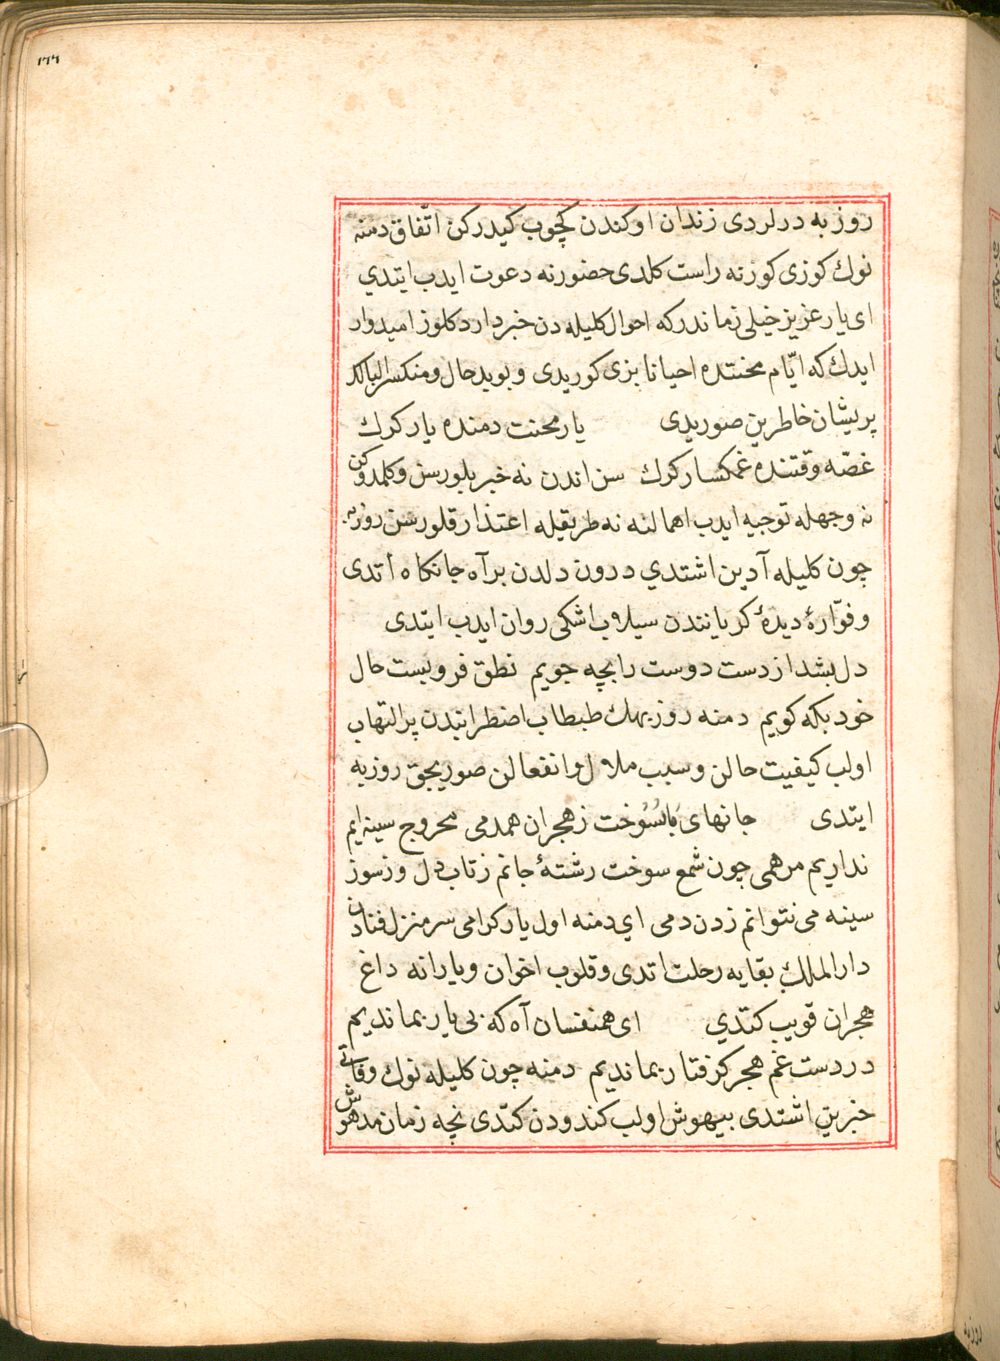 ١٦٦
روز به درلردی زندان اوكندن كچوب كیدركن اتّفاق دمنه
نوك كوزی كوزنه راست كلدی حضورنه دعوت ایدب ایتدي
ای یار عزیز خیلی زماندر كه احوال كلیله دن خبردار دكلوز امیدوار
ایدك كه ایّام محنتده احیانا بزی كوریدی و بوید حال و منكسر البالك
پریشان خاطرین صوریدی یار محنت دمنده یار كرك
غصّه وقتنده غمكسار كرك سن اندن نه خبر بلورسن و كلمدوكن
نه وجهله توجیه ایدب اهمالنه نه طریقیله اعتذار قلورسن روزبه
چون كلیله آدین اشتدي درون دلدن بر آه جانكاه أتدی
و فوّارهٔ دیدهٔ كریانندن سیلاب اشكی روان ایدب ایتدی
دل بشد از دست دوست را بچه جویم نطق فرو بست حال
خود بكه كویم دمنه روزبهك طبطاب اضطرابندن پر التهاب
اولب كیفیت حالن و سبب ملال و انفعالن صوریجق روزبه
ایتدی جانهای بَاسُوخت زهجران همدمی محروج سینه ایم
نداریم مرهمی چون شمع سوخت رشتهٔ جانم زتاب دل وز سوز
سینه می نتوانم زدن دمی اي دمنه اول یار كرامی سر منزل فنادن
دار الملك بقایه رحلت اتدی و قلوب اخوان و یارانه داغ
هجران قویب كتدي ای همنفسان آه كه بی یار بماندیم
در دست غم هجر كرفتار بماندیم دمنه چون كلیله نوك وفاتی
خبرین اشتدی بیهوش اولب كندودن كتدی نچه زمان مدهوش
روزبه